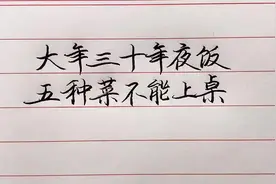 大年三十年夜饭
五种菜不能上桌